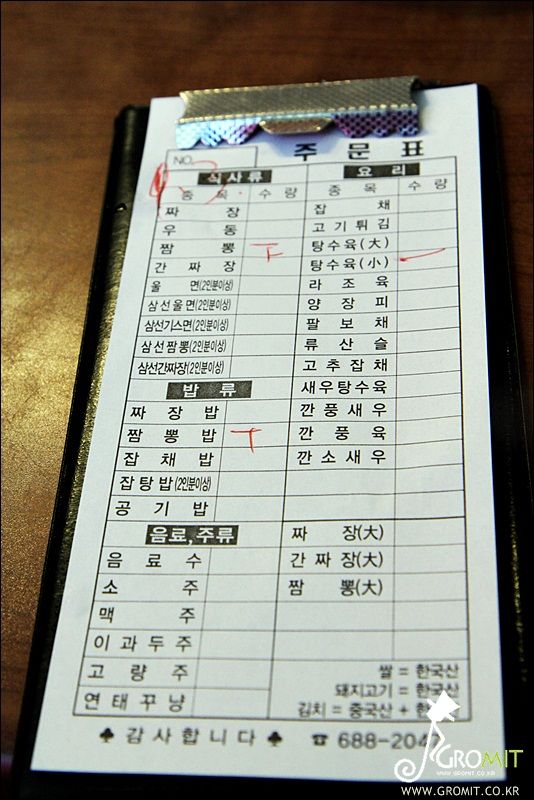 주문표
NO.
식사류 요리
종목 수량 종목 수량
짜장 잡채
우동 고기튀김
짬뽕 ㅜ 탕수육(大)
간짜장 탕수육(小)
울면(2인분이상) 라조육
삼선울면(2인분이상) 양장피
삼선기스면(2인분이상) 팔보채
삼선짬뽕(2인분이상) 류산슬
삼선간짜장(2인분이상) 고추잡채
밥류 새우탕수육
짜장밥 깐풍새우
짬뽕밥 ㅜ 깐풍육
잡채밥 깐소새우
잡탕밥(2인분이상)
공기밥
음료,주류 짜장(大)
음료수 간짜장(大)
소주 짬뽕(大)
맥주
이과두주
고량주 쌀 = 한국산
연태꾸냥 돼지고기 = 한국산
김치 = 중국산 + 한
♣ 감사합니다 ♣ ☎ 688-204
GROMIT
WWW.GROMIT.CO.KR
WWW.GROMIT.CO.KR